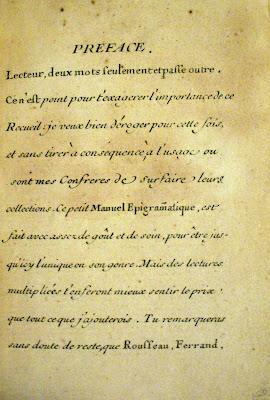 PREFACE.
Lecteur, deux mots seulement et passe outre.
Ce n'est point pour t'exagerer l'importance de ce
Recueil: je veux bien déroger pour cette fois,
et sans tirer à conséquence à l'usage ou
sont mes Confreres de surfaire leurs
collections. Ce petit Manuel Epigram̃atique, est
fait avec assez de goût et de soin, pour être jus-
qu'icy l'unique en son genre. Mais des lectures
multipliées t'en feront mieux sentir le prix
que tout ce que j'ajouterois. Tu remarqueras
sans doute de reste, que Rousseau, Ferrand,